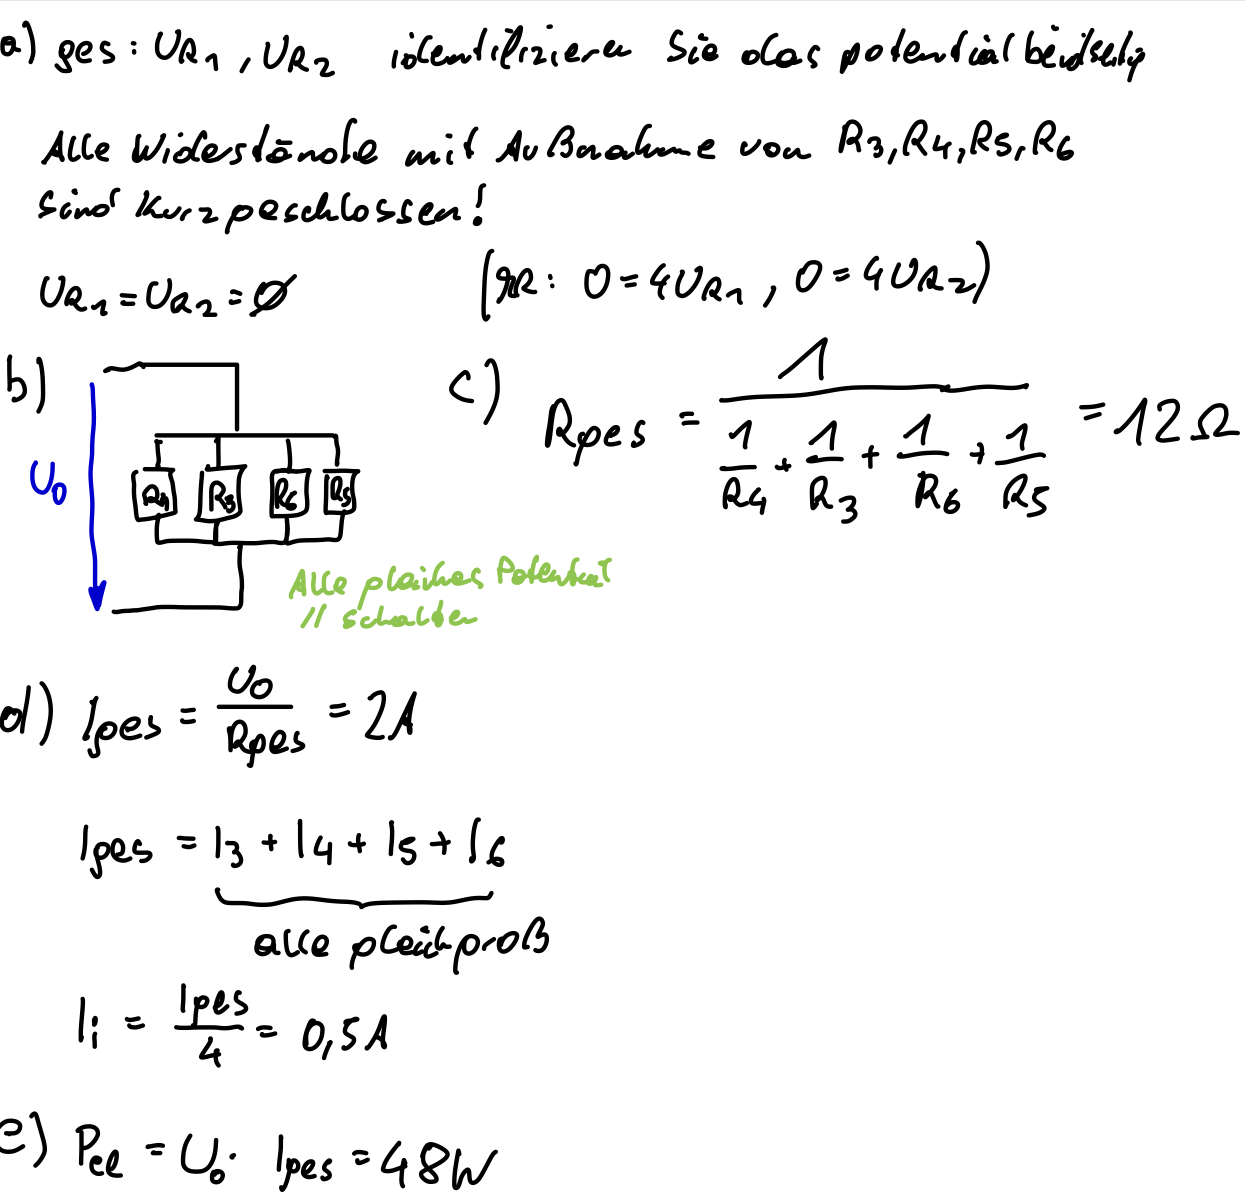 a) ges: U_R1, U_R2 identifizieren Sie das potential beidseitig
Alle Widerstände mit Außnahme von R3, R4, R5, R6
sind Kurzgeschlossen!
U_R1 = U_R2 = 0 (gR: 0 = 4U_R1, 0 = 4U_R2)
b)
U_0
R4 R3 R6 R5
Alle gleiches Potential
// schalten
c) R_ges = 1 / (1/R4 + 1/R3 + 1/R6 + 1/R5) = 12 Ω
d) I_ges = U_0 / R_ges = 2A
I_ges = I3 + I4 + I5 + I6
alle gleichgroß
I_i = I_ges / 4 = 0,5 A
e) P_el = U_0 · I_ges = 48 W